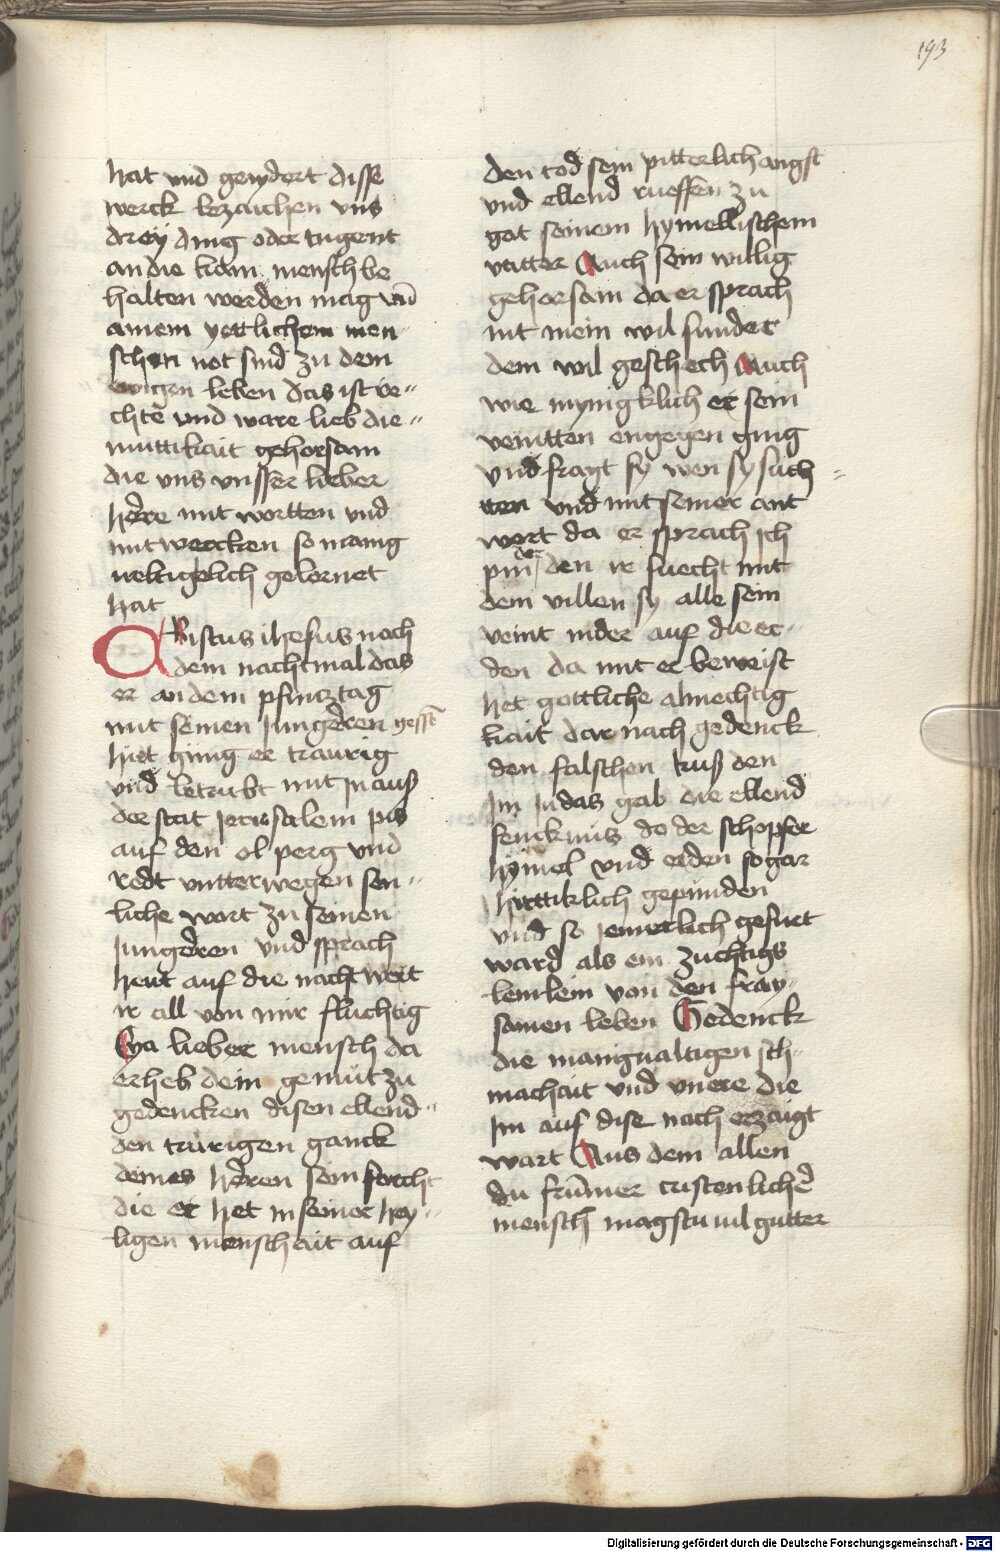 193
hat vnd genydert disse
werck bezaichen vns
drey ding oder tugent
an die kain mensch be
halten werden mag vnd
ainem yettlichem men-
schen not sind zu dem
ewigen leben das ist re-
chte vnd ware lieb die-
muttikait gehorsam
die vns vnsser lieber
herre mit wortten vnd
mit wercken so manig
ueltigklich gelernet
hat
Cristus ihesus noch
dem nachtmal das
er an dem pfincztag
mit seinen Jungeren gessen
hiet ging er traurig
vnd betrubt mit In auß
der stat Jerusalem pis
auf den ol perg vnd
redt vntterwegen sen-
liche wort zu seinen
Jungeren vnd sprach
heut auf die nacht wert
ir all von mir fluchtig
Eya lieber mensch da
erheb dein gemüt zu
gedencken disen ellend-
den trürigen ganck
deines heren sein forcht
die er het in seiner hey-
ligen menschait auf
den tod sein pitterlich angst
vnd ellend rueffen zu
got seinem hymellischem
vatter Auch sein willig
gehorsam da er sprach
nit mein wil sunder
dem wil geschech Auch
wie mynigklich er sein
veintten engegen ging
vnd fragt sy wen sy such
tten vnd mit seiner ant
wort da er sprach ich
pin der den ir suecht mit
dem villen sy alle sein
veint nider auf die er-
den da mit er beweist
het gottliche almechtig
kait dar nach gedenck
den falschen kuß den
Im Judas gab die ellend
fencknus do der schopfer
hymel vnd erden so gar
hërttiklich gepunden
vnd so Jemerlich gefuert
ward als ein zuchtigs
lemlein von den fray-
samen leben Gedenck
die manigualtigen sch-
machait vnd vnere die
Im auf dise nach erzaigt
wart Aus dem allen
du frumer cristenlicher
mensch magstu uil gutter
Digitalisierung gefördert durch die Deutsche Forschungsgemeinschaft - DFG